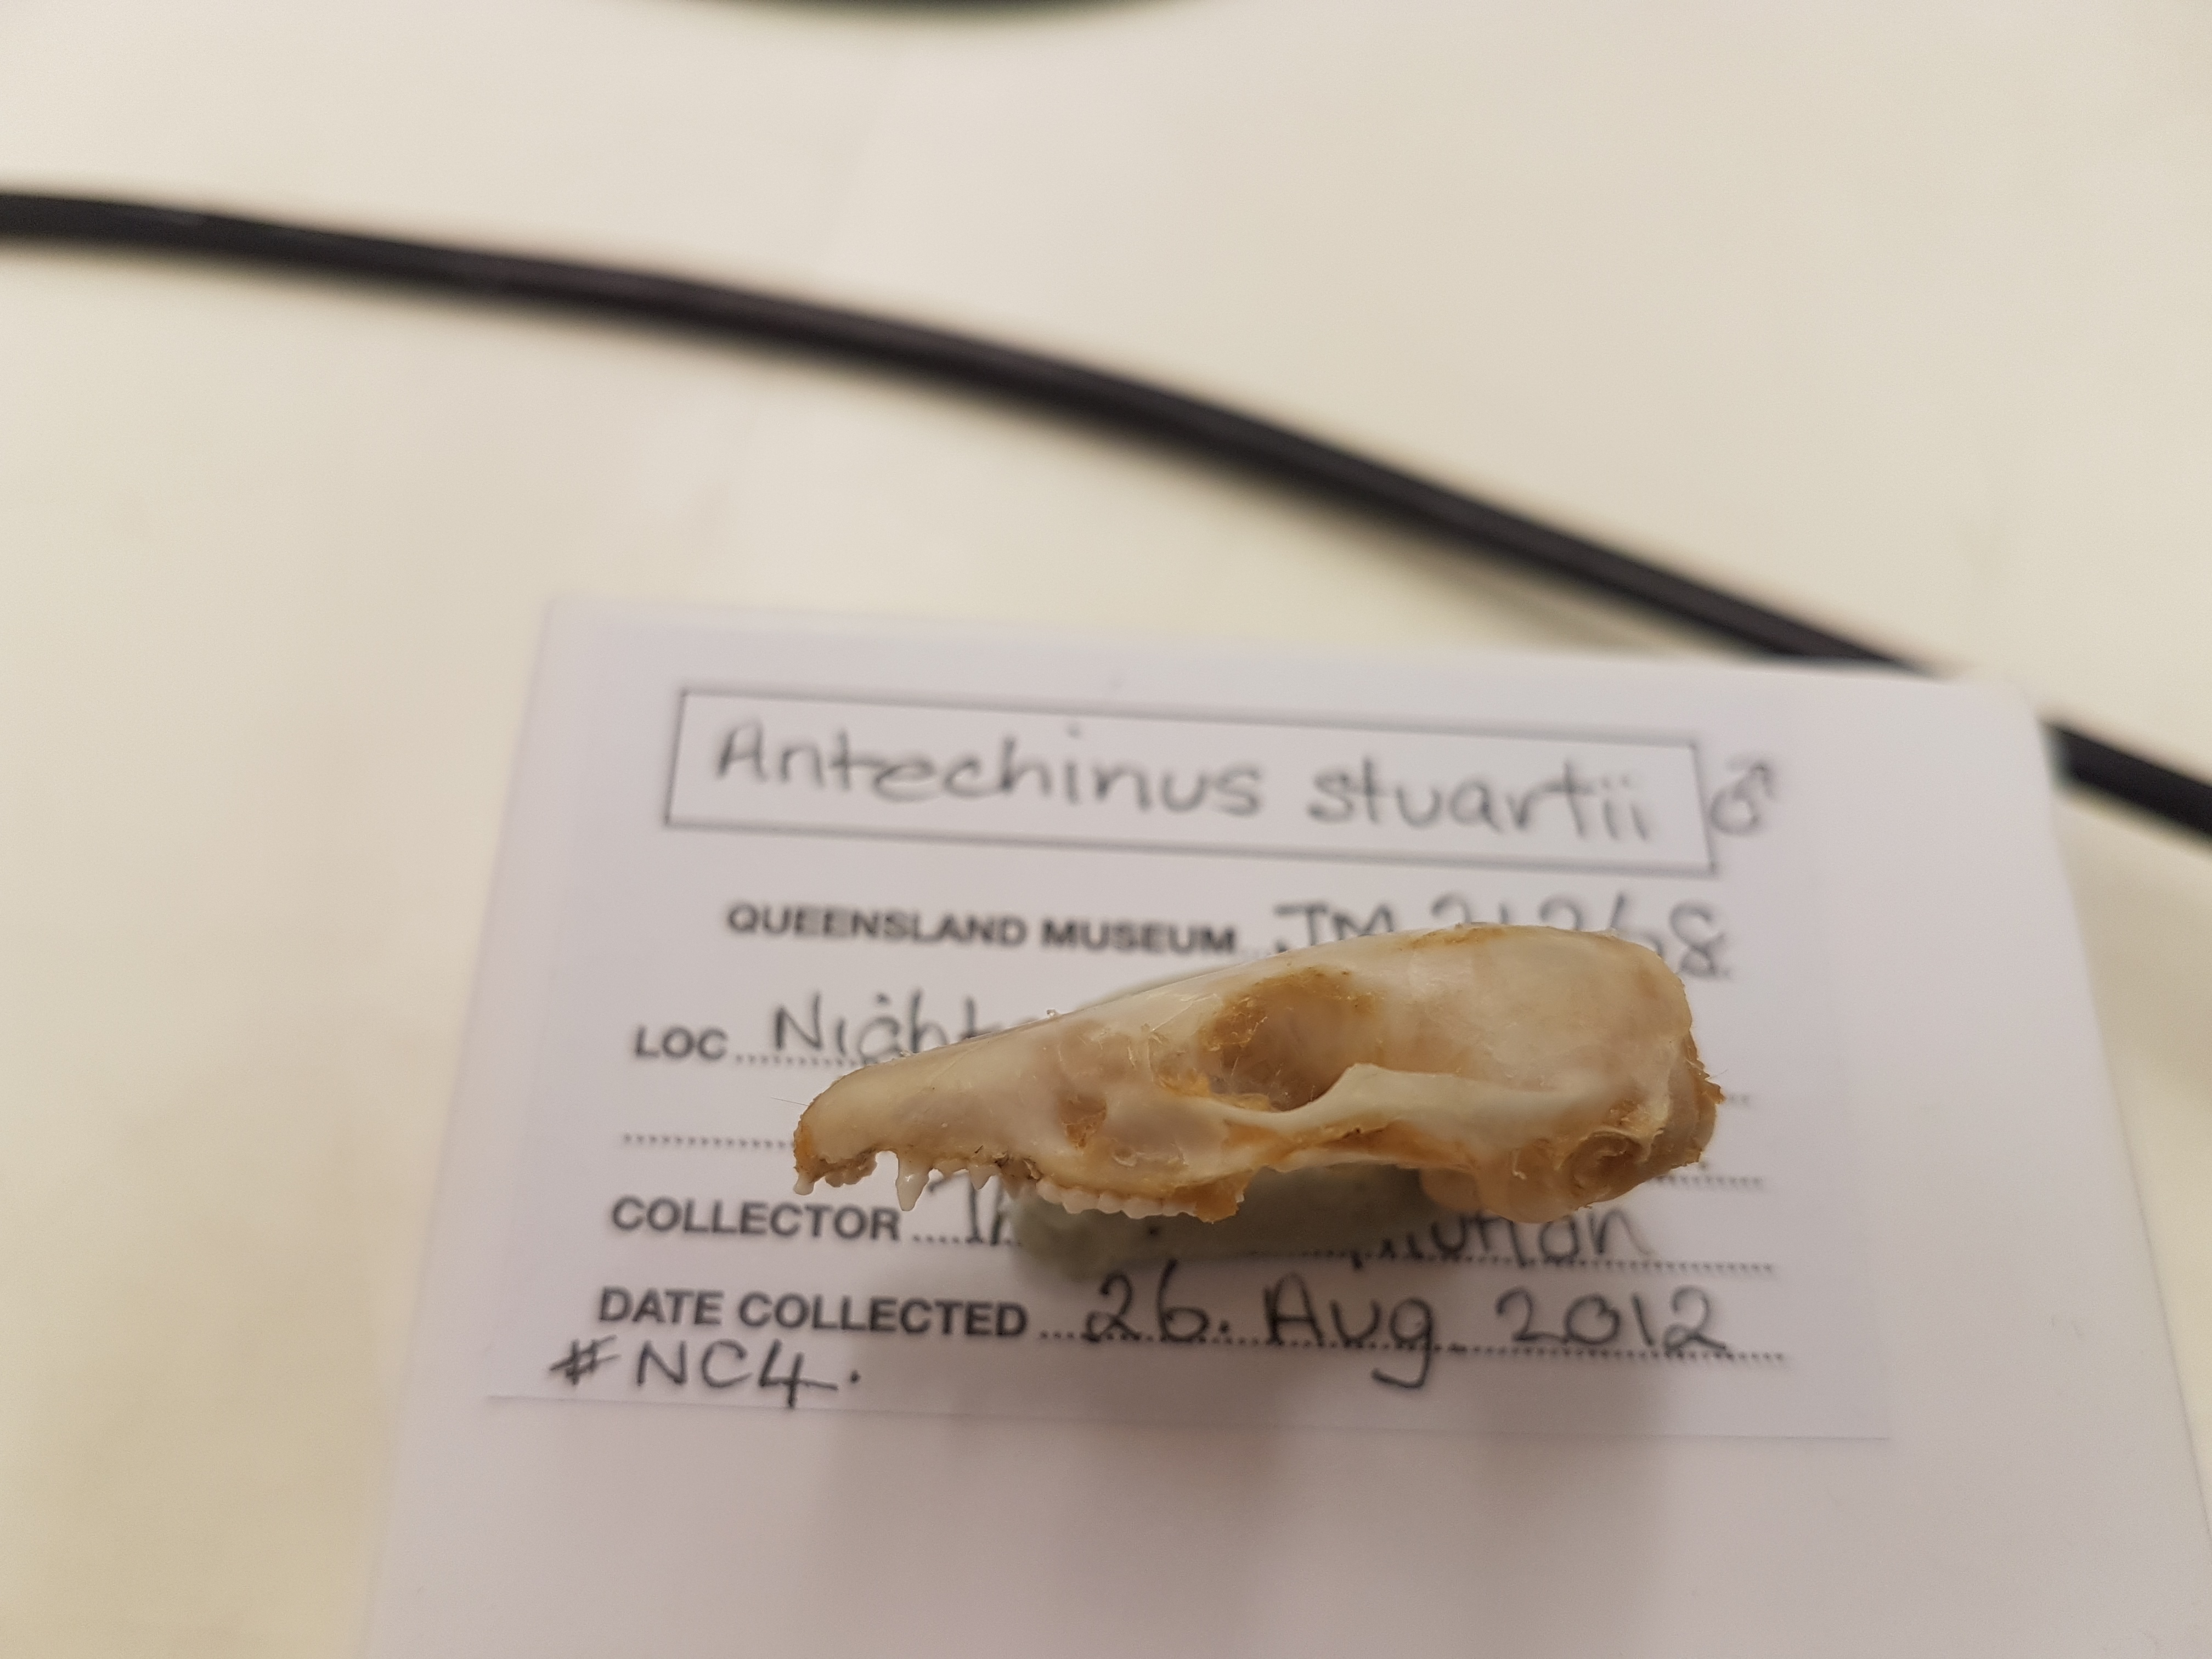 Antechinus stuartii ♂
QUEENSLAND MUSEUM JM
LOC
COLLECTOR
DATE COLLECTED 26. Aug 2012
#NC4.